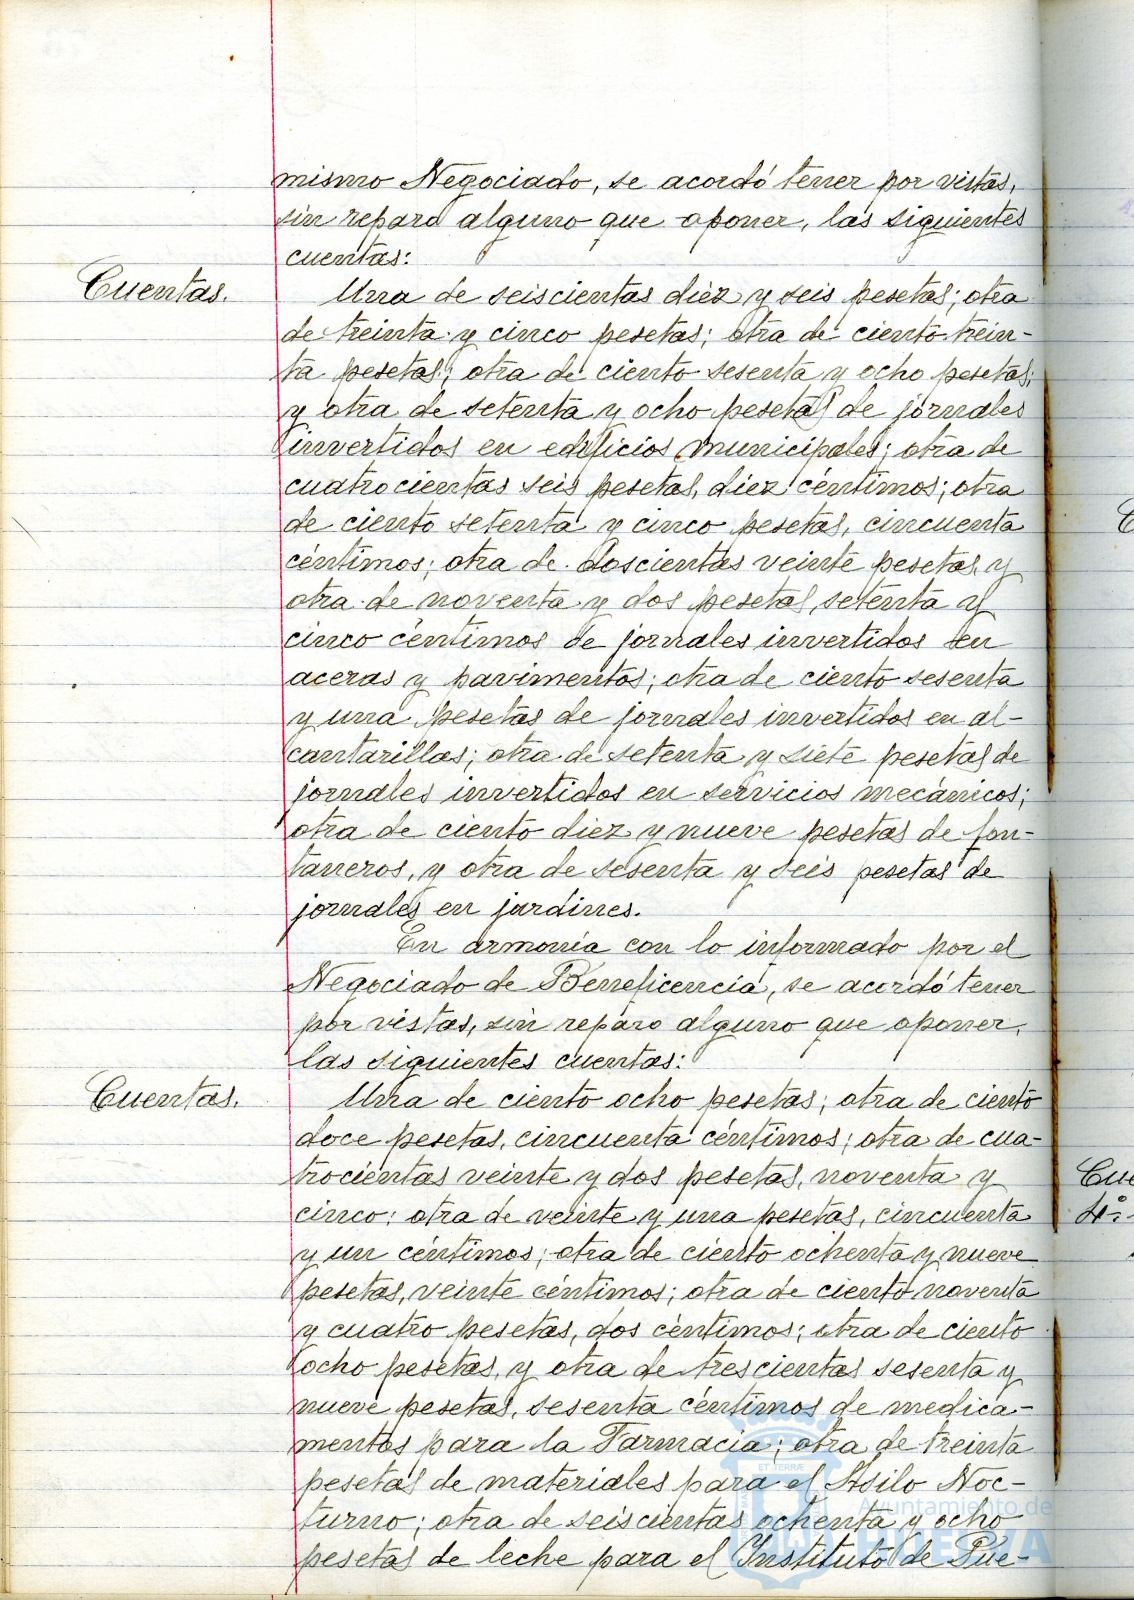 mismo Negociado, se acordó tener por vistas,
sin reparo alguno que oponer, las siguientes
cuentas:
Cuentas.
Una de seiscientas diez y seis pesetas; otra
de treinta y cinco pesetas; otra de ciento trein-
ta pesetas; otra de ciento sesenta y ocho pesetas;
y otra de setenta y ocho pesetas de jornales
invertidos en edificios municipales; otra de
cuatrocientas seis pesetas, diez céntimos; otra
de ciento setenta y cinco pesetas, cincuenta
céntimos; otra de doscientas veinte pesetas, y
otra de noventa y dos pesetas, setenta y
cinco céntimos de jornales invertidos en
aceras y pavimentos; otra de ciento sesenta
y una pesetas de jornales invertidos en al-
cantarillas; otra de setenta y siete pesetas de
jornales invertidos en servicios mecánicos;
otra de ciento diez y nueve pesetas de fon-
taneros, y otra de sesenta y seis pesetas de
jornales en jardines.
En armonía con lo informado por el
Negociado de Beneficencia, se acordó tener
por vistas, sin reparo alguno que oponer,
las siguientes cuentas:
Cuentas.
Una de ciento ocho pesetas; otra de ciento
doce pesetas, cincuenta céntimos; otra de cua-
trocientas veinte y dos pesetas, noventa y
cinco; otra de veinte y una pesetas, cincuenta
y un céntimos; otra de ciento ochenta y nueve
pesetas, veinte céntimos; otra de ciento noventa
y cuatro pesetas, dos céntimos; otra de ciento
ocho pesetas, y otra de trescientas sesenta y
nueve pesetas, sesenta céntimos de medica-
mentos para la Farmacia; otra de treinta
pesetas de materiales para el Asilo Noc-
turno; otra de seiscientas ochenta y ocho
pesetas de leche para el Instituto de Pue-
Cue
4º-
Ayuntamiento de
HUELVA